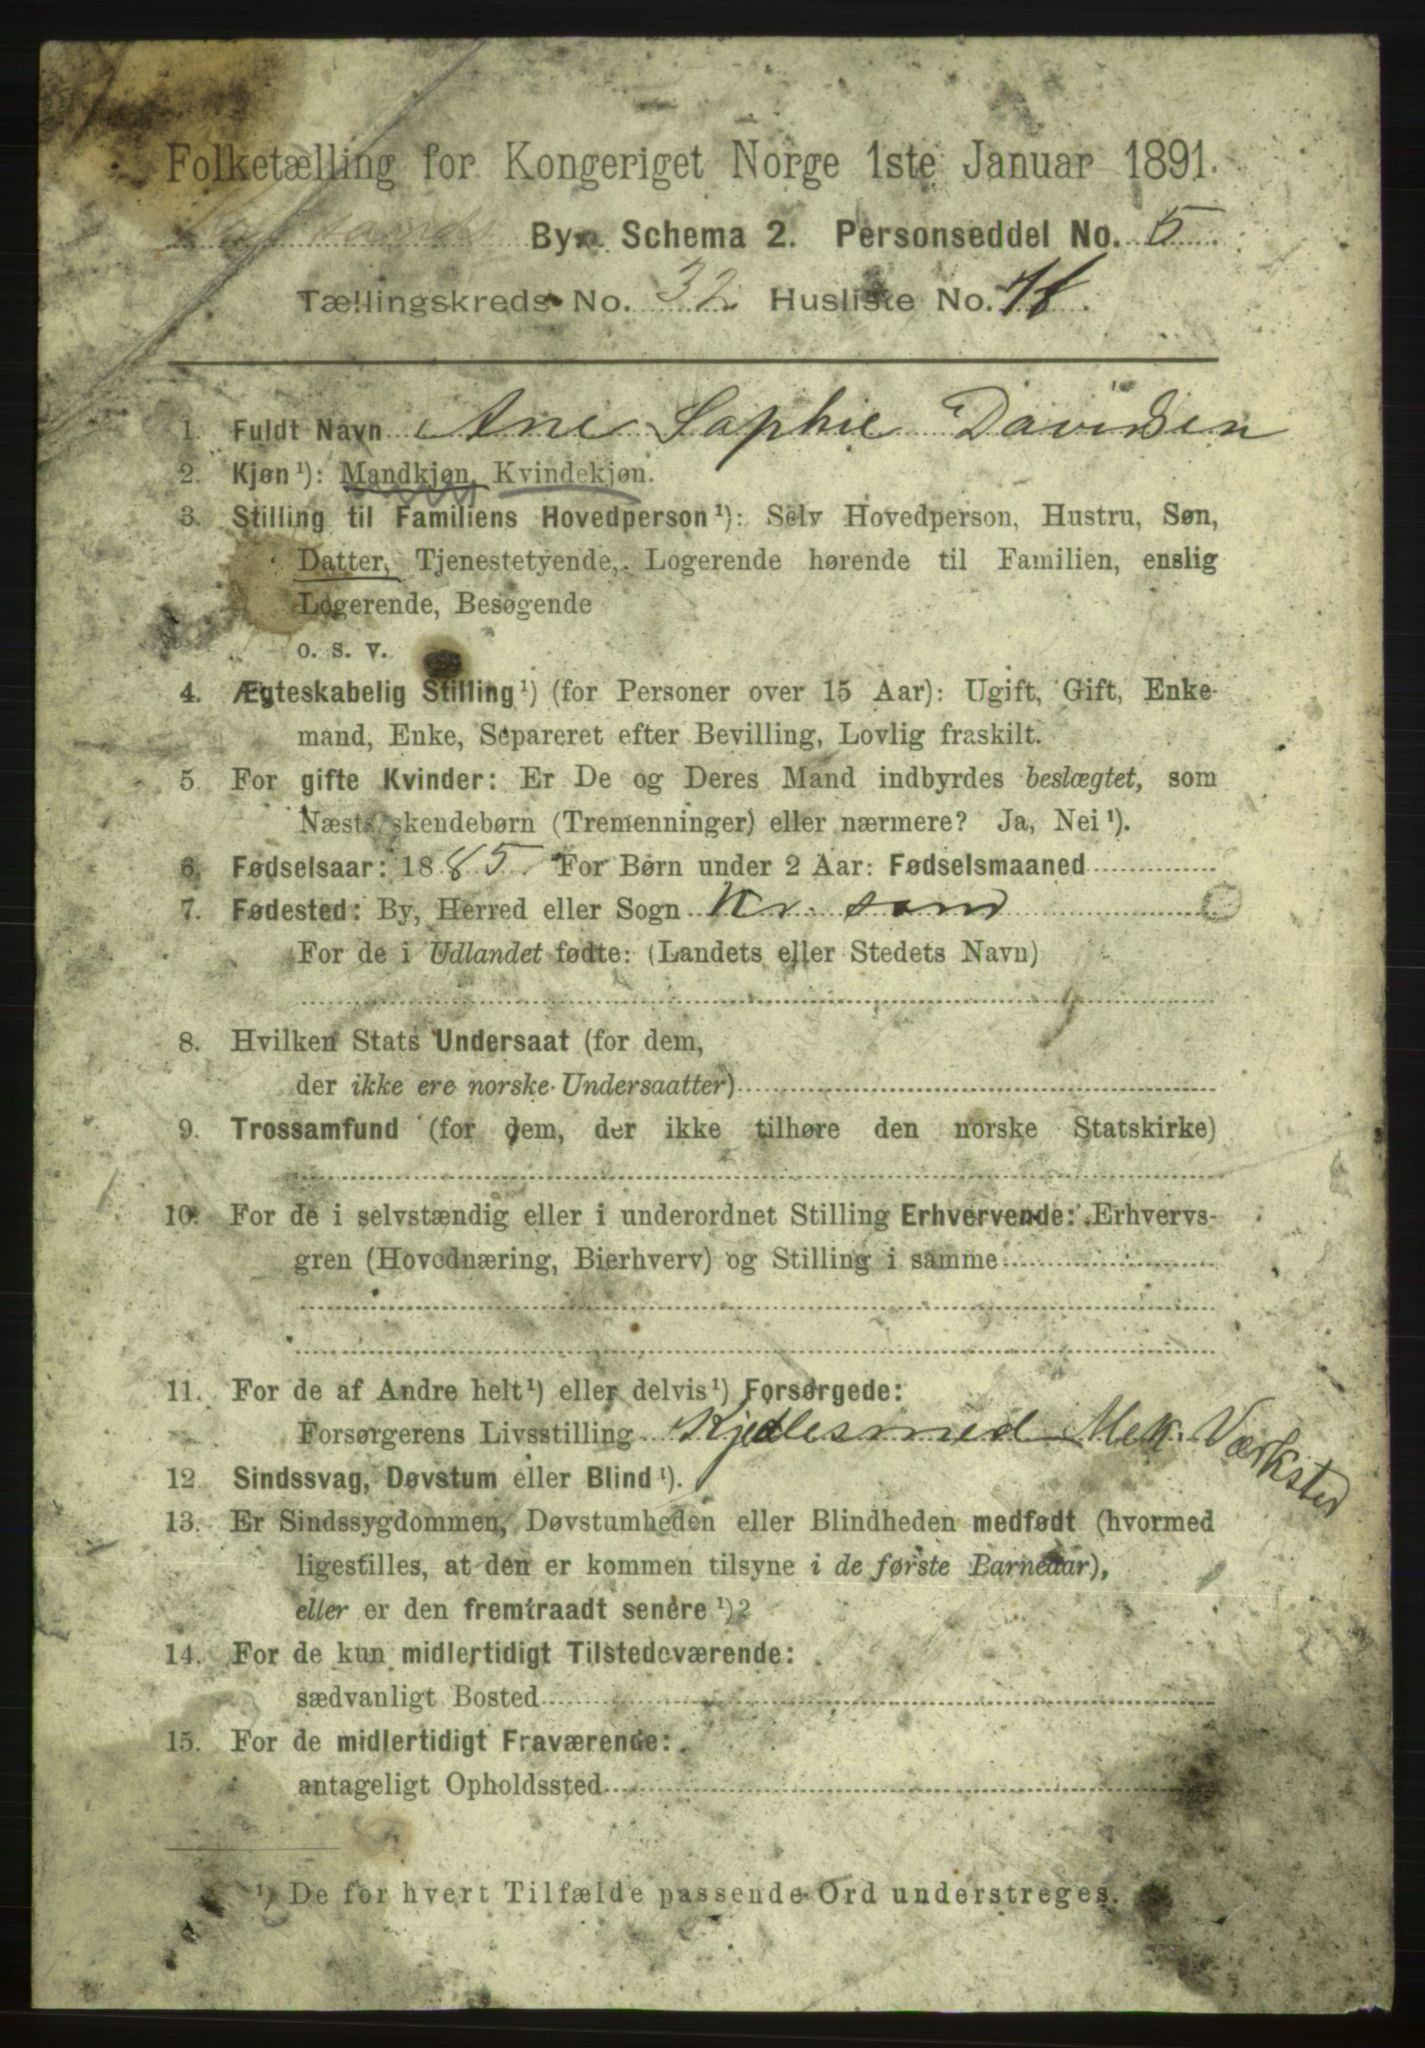 Folketælling for Kongeriget Norge 1ste Januar 1891.
By. Schema 2. Personseddel No. 5
Tællingskreds No. 32 Husliste No.
1. Fuldt Navn Ane Sophie Davidsen
2. Kjøn¹): Mandkjøn, Kvindekjøn.
3. Stilling til Familiens Hovedperson¹): Selv Hovedperson, Hustru, Søn,
Datter, Tjenestetyende, Logerende hørende til Familien, enslig
Logerende, Besøgende
o. s. v.
4. Ægteskabelig Stilling¹) (for Personer over 15 Aar): Ugift, Gift, Enke-
mand, Enke, Separeret efter Bevilling, Lovlig fraskilt.
5. For gifte Kvinder: Er De og Deres Mand indbyrdes beslægtet, som
Næstsøskendebørn (Tremenninger) eller nærmere? Ja, Nei¹).
6. Fødselsaar: 1885. For Børn under 2 Aar: Fødselsmaaned
7. Fødested: By, Herred eller Sogn Kr. sand
For de i Udlandet fødte: (Landets eller Stedets Navn)
8. Hvilken Stats Undersaat (for dem,
der ikke ere norske Undersaatter)
9. Trossamfund (for dem, der ikke tilhøre den norske Statskirke)
10. For de i selvstændig eller i underordnet Stilling Erhvervende: Erhvervs-
gren (Hovednæring, Bierhverv) og Stilling i samme
11. For de af Andre helt¹) eller delvis¹) Forsørgede:
Forsørgerens Livsstilling Kjedlesmed Mek. Værksted
12. Sindssvag, Døvstum eller Blind¹).
13. Er Sindssygdommen, Døvstumheden eller Blindheden medfødt (hvormed
ligestilles, at den er kommen tilsyne i de første Barneaar),
eller er den fremtraadt senere¹)?
14. For de kun midlertidigt Tilstedeværende:
sædvanligt Bosted
15. For de midlertidigt Fraværende:
antageligt Opholdssted
¹) De for hvert Tilfælde passende Ord understreges.